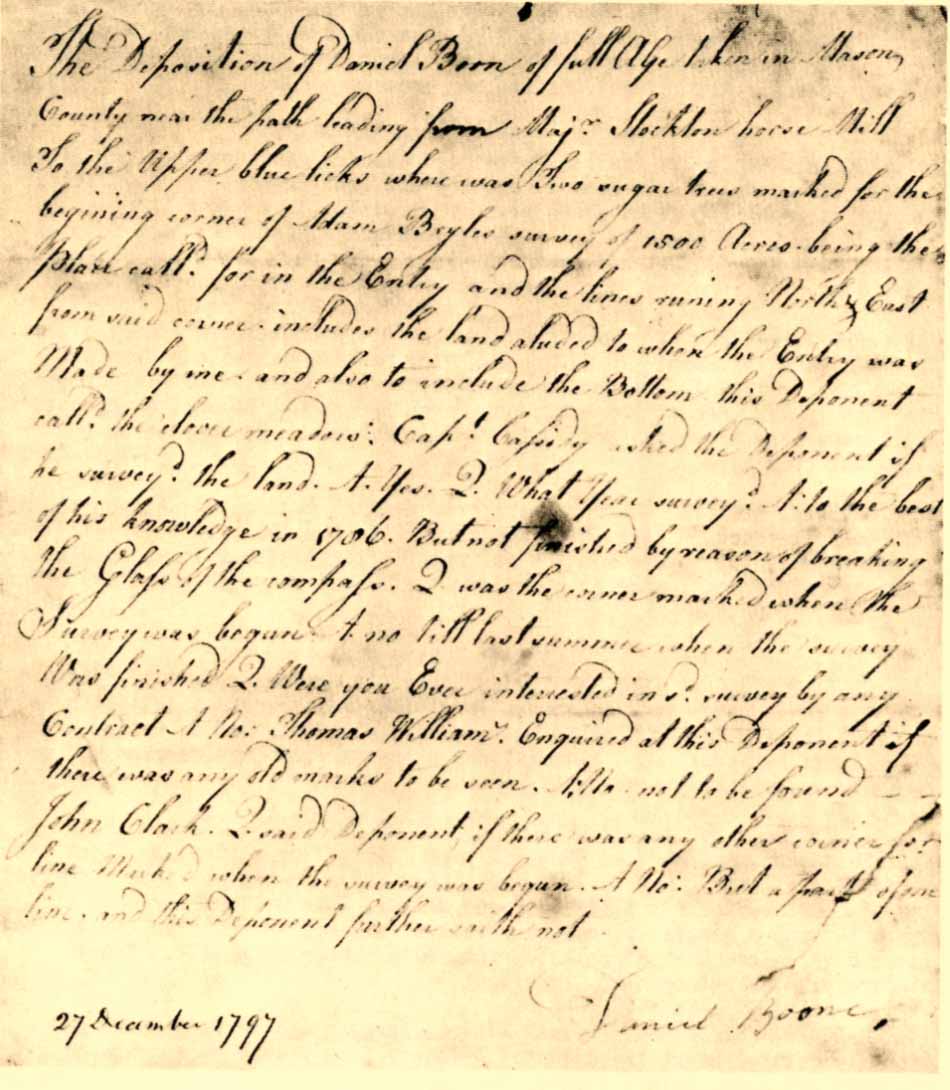 The Deposition of Daniel Boon of full Age taken in Mason
County near the path leading from Majr. Stockton horse Mill
To the Upper blue licks where was Two sugar trees marked for the
begining corner of Adam Beyles survey of 1500 Acres being the
Place calld. for in the Entry and the lines runing North & East
from said corner includes the land aluded to when the Entry was
Made by me and also to include the Bottom this Deponent
calld. the clover meadows. Capt. Cassidy asked the Deponent if
he surveyd. the land. A. Yes. Q. What Year surveyd. A: to the best
of his knowledge in 1786. But not finished by reason of breaking
the Glass of the compass. Q was the corner marked when the
Survey was begun A no till last summer when the survey
Was finished Q. Were you Ever interested in sd. survey by any
Contract A No: Thomas Williams. Enquired at this Deponent if
there was any old marks to be seen. A: No not to be found
John Clark. Q. said Deponent if there was any other corner for
line Marked when the survey was begun. A No: But a part of
line. and this Deponent further saith not
Daniel Boone.
27 December 1797